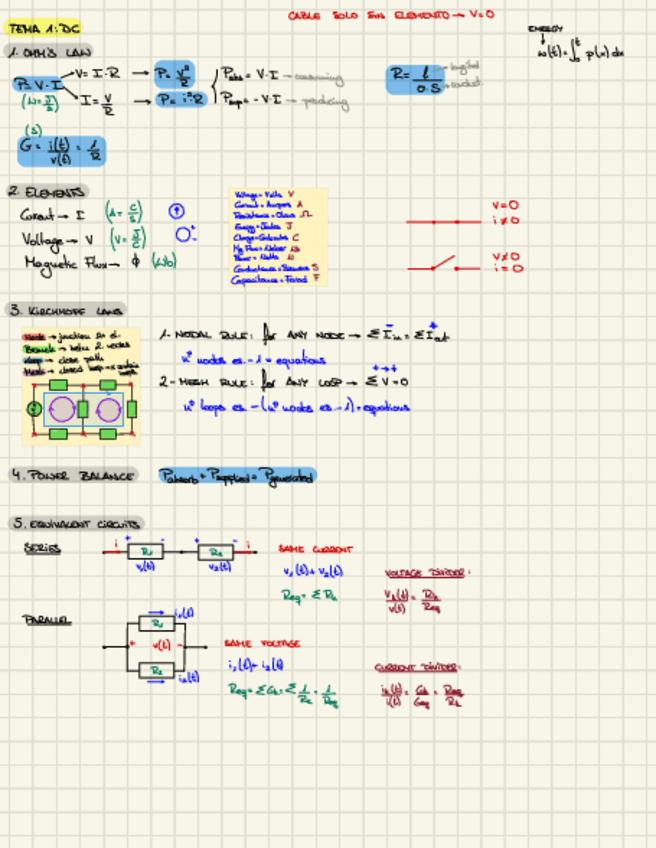 CABLE SOLO SIN ELEMENTO → V=0
TEMA 1: DC
ENERGY
w(t)=∫₀ᵗ p(x) dx
1. OHM'S LAW
P=V·I
V=I·R → P=V²/R
I=V/R → P=i²·R
Pabs=V·I — consuming
Psup=-V·I — producing
R=l/σ·S
(S)
G=i(t)/v(t)=1/R
2. ELEMENTS
Current → I (A=C/s)
Voltage → V (V=J/C)
Magnetic Flux → ϕ (Wb)
Voltage=Volts V
Current=Ampers A
Resistance=Ohms Ω
Energy=Joules J
Charge=Coulombs C
Mg Flux=Weber Wb
Power=Watts W
Conductance=Siemens S
Capacitance=Farad F
V=0
i≠0
V≠0
i=0
3. KIRCHHOFF LAWS
Node → junction
Branch → betw 2 nodes
Loop → close path
Mesh → closed loop
1- NODAL RULE: for ANY NODE → ΣIin=ΣIout
nº nodes es -1 = equations
2- MESH RULE: for ANY LOOP → ΣV=0
nº loops es -(nº nodes es -1)=equations
4. POWER BALANCE
Pabsorb+Psupplied=Pgenerated
5. EQUIVALENT CIRCUITS
SERIES
i R1 R2 i
v1(t) v2(t)
SAME CURRENT
v1(t)+v2(t)
Req=ΣRk
VOLTAGE DIVIDER:
vk(t)/v(t)=Rk/Req
PARALLEL
i1(t)
R1
+ v(t) -
R2
i2(t)
SAME VOLTAGE
i1(t)+i2(t)
Req=ΣGk=Σ1/Rk=1/Req
CURRENT DIVIDER:
ik(t)/i(t)=Gk/Geq=Req/Rk